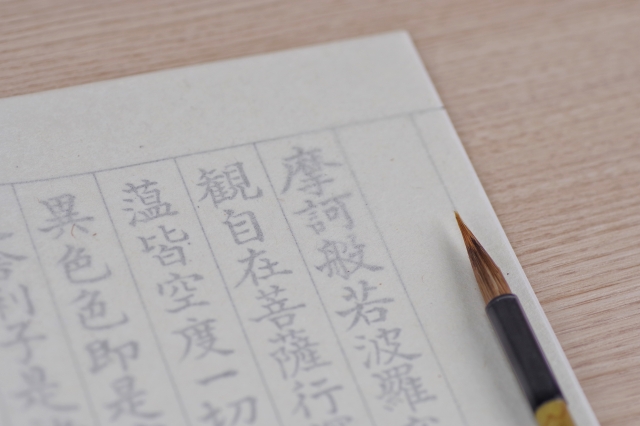 摩訶般若波羅
観自在菩薩行
薀皆空度一切
異色色即是
舎利子是